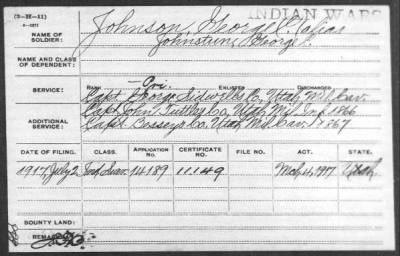 (3-HK-11)
INDIAN WARS
NAME OF SOLDIER:
Johnson, George C. alias
Johnstun, George
NAME AND CLASS OF DEPENDENT:
SERVICE:
RANK ENLISTED DISCHARGED
Capt. George Sidwells Co, Utah Mil. Cav.
ADDITIONAL SERVICE:
Capt John Tuttles Co, Utah Mil. Inf. 1866
Capt Co, Utah Mil. Cav. 1867
DATE OF FILING. CLASS. APPLICATION NO. CERTIFICATE NO. FILE NO. ACT. STATE.
1917, July 2 Ind Surv. 14189 11149 Mch. 4, 1917 Utah
BOUNTY LAND:
REMARKS: